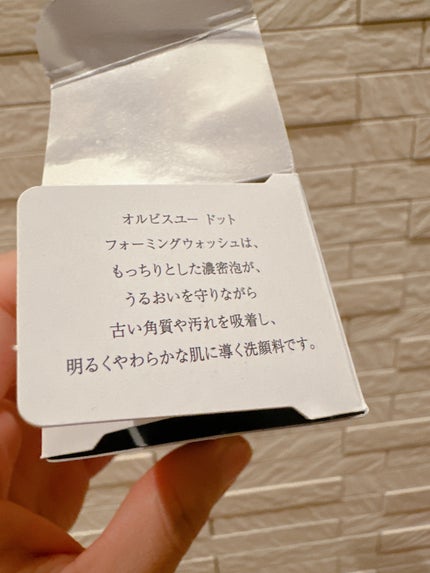 オルビスユー ドット
フォーミングウォッシュは、
もっちりとした濃密泡が、
うるおいを守りながら
古い角質や汚れを吸着し、
明るくやわらかな肌に導く洗顔料です。